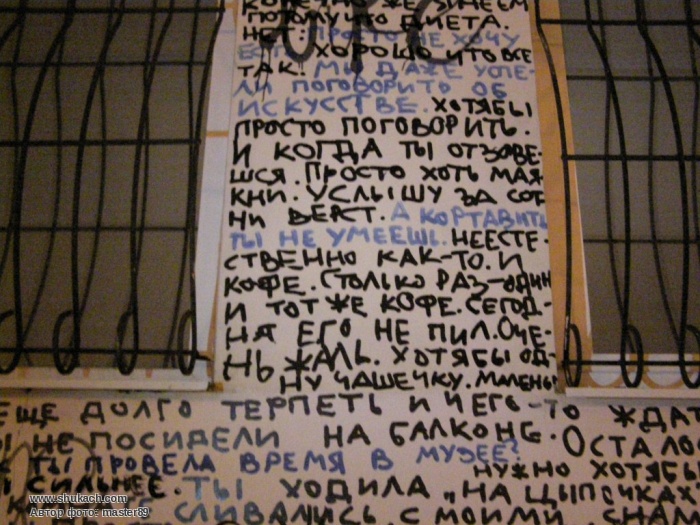 КОНЕЧНО ЖЕ ЗИНЕЕМ
ПОТОМУ ЧТО ДИЕТА.
НЕТ. ПРОСТО НЕ ХОЧУ
ЕСТЬ. ХОРОШО, ЧТО ВСЕ
ТАК! МЫ ДАЖЕ УСПЕ-
ЛИ ПОГОВОРИТЬ ОБ
ИСКУССТВЕ. ХОТЯБЫ
ПРОСТО ПОГОВОРИТЬ.
И КОГДА ТЫ ОТЗОВЕ-
ШСЯ. ПРОСТО ХОТЬ МАЯ-
КНИ. УСЛЫШУ ЗА СОТ
НИ ВЕРСТ. А КОРТАВИТЬ
ТЫ НЕ УМЕЕШЬ. НЕЕСТЕ-
СТВЕННО КАК-ТО. И
КОФЕ. СТОЛЬКО РАЗ-ОДИН
И ТОТ ЖЕ КОФЕ. СЕГОД-
НЯ ЕГО НЕ ПИЛ. ОЧЕ-
НЬ ЖАЛЬ. ХОТЯБЫ ОД-
НУ ЧАШЕЧКУ. МАЛЕНЬ
ЕЩЕ ДОЛГО ТЕРПЕТЬ И ЧЕГО-ТО ЖДА
Ы НЕ ПОСИДЕЛИ НА БАЛКОНЕ. ОСТАЛО
К ТЫ ПРОВЕЛА ВРЕМЯ В МУЗЕЕ?
НУЖНО ХОТЯБЫ
СИЛЬНЕЕ. ТЫ ХОДИЛА „НА ЦЫПОЧКАХ
СЛИВАЛИСЬ С МОИМИ
www.shukach.com
Автор фото: master69